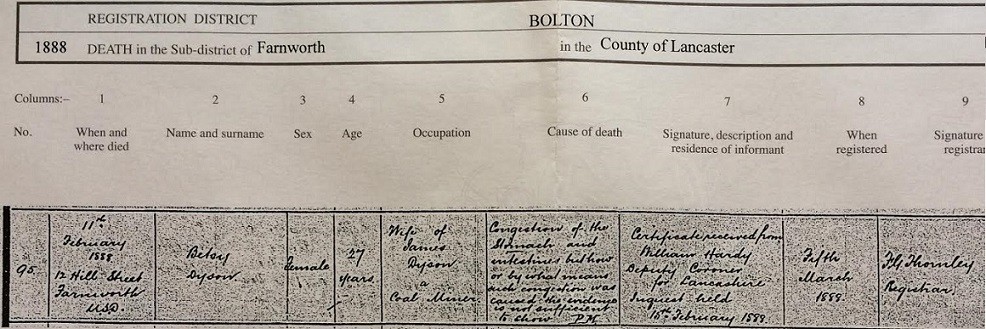 REGISTRATION DISTRICT BOLTON
1888 DEATH in the Sub-district of Farnworth in the County of Lancaster
Columns:– 1 2 3 4 5 6 7 8 9
No. When and where died Name and surname Sex Age Occupation Cause of death Signature, description and residence of informant When registered Signature registra
95
11th
February
1888
12 Hill Street
Farnworth
USD
Betsy
Dyson
Female
27
years
Wife of
James
Dyson
a
Coal Miner
Congestion of the
Stomach and
intestines but how
or by what means
such congestion was
caused the evidence
is not sufficient
to show P.M.
Certificate received from
William Hardy
Deputy Coroner
for Lancashire
Inquest held
15th February 1888
Fifth
March
1888.
Thornley
Registrar